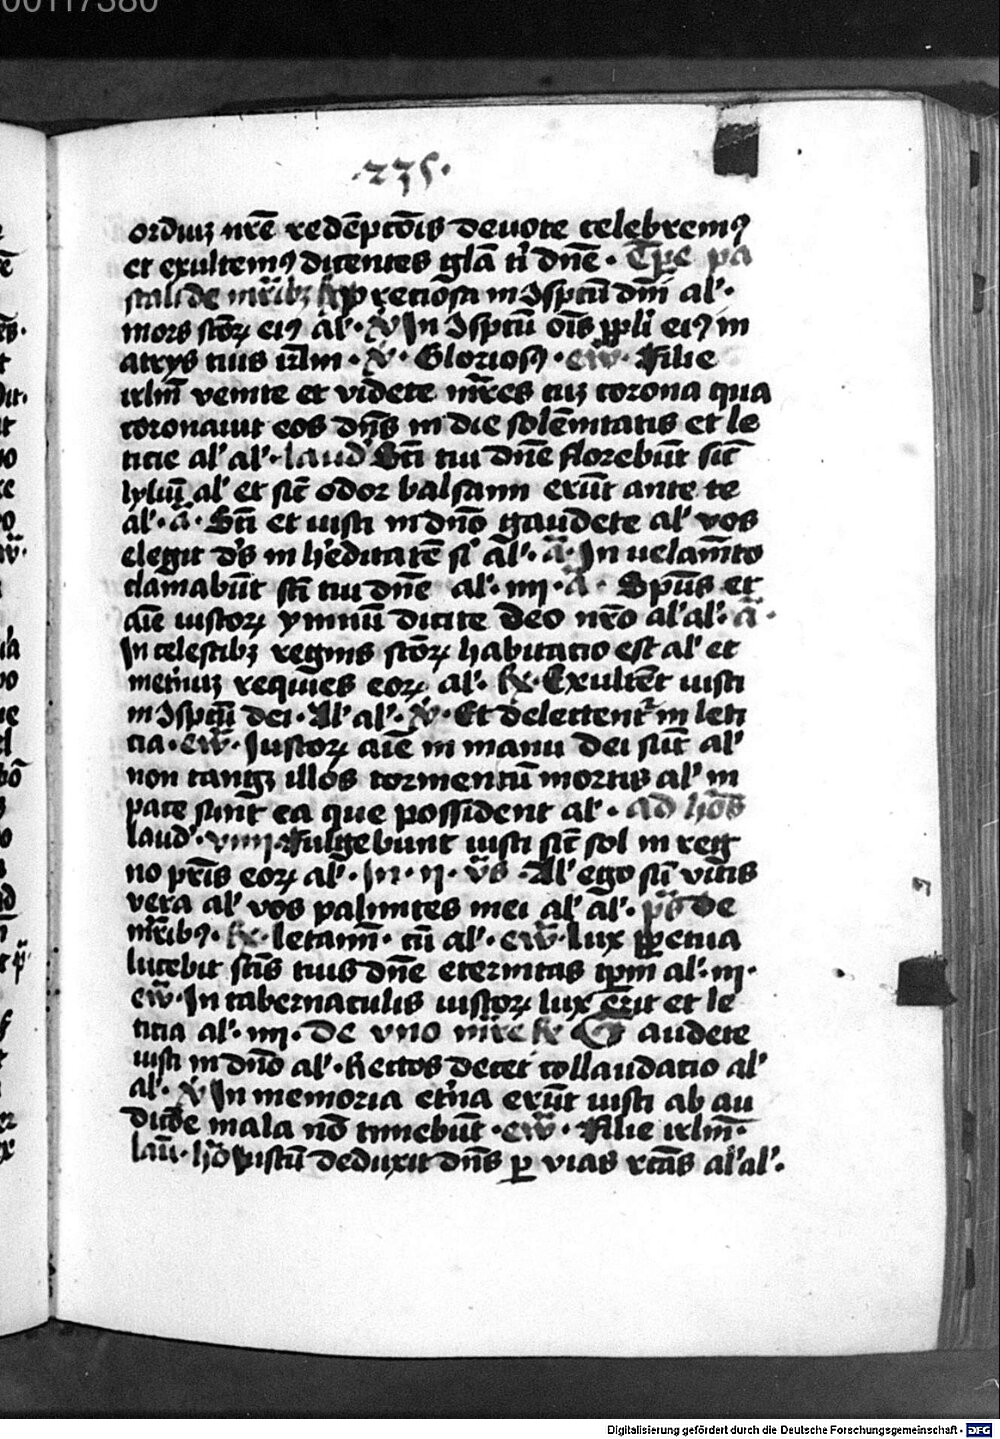 00117380
·235·
ordiuꝫ nr̄e redēpcōis deuote celebremꝰ
et exultemꝰ dicentes gl̄a ti dn̄e · Tp̄e pa
scali de mr̄ibꝫ p̄reciōsa in ꝯspc̄tū dn̄i al'·
mors sc̄oꝝ eiꝰ al'· ꝟ In ꝯspc̄tū oīs ppl̄i eiꝰ in
atrys tuis ir̄lm · ꝟ · Gloriosꝰ · ew̄ · Filie
irl̄m venite et videte mr̄es cuꝫ corona qua
coronauit eos dn̄s in die solēnitatis et le
ticie al' al'· laud' Sc̄i tui dn̄e florebūt sic̄
lyliū al' et sic̄ odor balsami erūt ante te
al'· a᷃ · Sc̄i et iusti in dn̄o gaudete al' vos
elegit d's in h'editatē s' al'· a᷃ · In uelam̄to
clamabūt sc̄i tui dn̄e al'· iiij · a᷃ · Sp̄us et
aīe iustoꝝ ymnū dicite deo nr̄o al' al'· a᷃ ·
In celestibꝫ regnis sc̄oꝝ habitatio est al' et
in et'nuꝫ requies eoꝝ al'· ℞ · Exultēt iusti
in ꝯspc̄tu dei · Al' al'· ꝟ · Et delectent' in leti
cia · ew̄ · Iustoꝝ aīe in manu dei sūt al'
non tangꝫ illos tormentū mortis al' in
pace sunt ea que possident al'· ad hōs
laud'· viiij · Fulgebunt iusti sic̄ sol in reg
no pr̄is eoꝝ al'· In · ij · v̄s · Al' ego sū vitis
vera al' vos palmites mei al' al'· p̄s de
mr̄ibꝰ · ℞ · letam̄ · cū al'· ew̄ · lux ꝑpetua
lucebit sc̄is tuis dn̄e eternitas tp̄m al'· iij ·
ew̄ · In tabernaculis iustoꝝ lux erit et le
ticia al'· iiij · De vno mr̄e ℞ Gaudete
iusti in dn̄o al'· Rectos decet collaudatio al'
al'· ꝟ In memoria et'na erūt iusti ab au
dic̄oe mala nō timebūt · ew̄ · Filie irl̄m ·
lau᷃ · hō Iustū deduxit dn̄s ꝑ vias rc̄as al' al'·
Digitalisierung gefördert durch die Deutsche Forschungsgemeinschaft - DFG